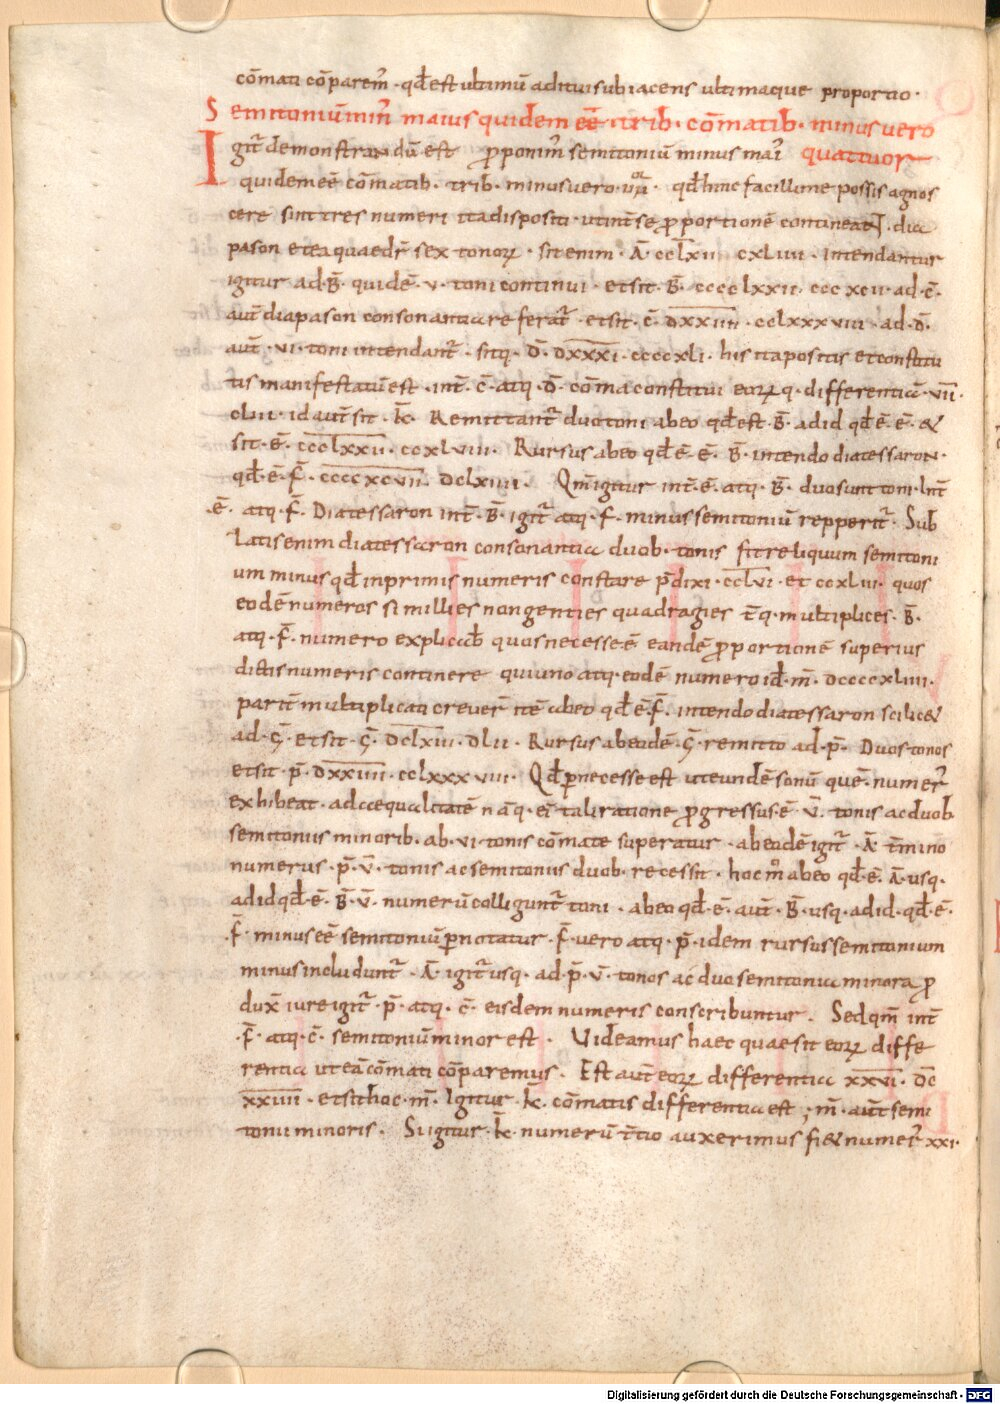 cōmati cōparem̄ · qd̄ est ultimū aditui subiacens ultimaque proportio ·
Semitoniū min̄ maius quidem eē · trib · cōmatib · minus uero
Igit̄ demonstrandū est proponim̄ semitoniū minus mai quattuor
quidem eē cōmatib · trib · minus uero · uor · qd̄ hinc facillime possis agnos
cere sint tres numeri ita dispositi · ut int̄ se proportionē contineat · dia
pason et ea quae dr̄ sex tonoꝝ · sit enim · Ā · cclxii cxliiii · intendantur
igitur ad · B̄ · quidē · v · toni continui · et sit · B̄ · cccclxxii · cccxcii · ad · c̄ ·
aut̄ diapason consonantia referat̄ · et sit · c̄ · dxxiiii · cclxxxviii · ad · D̄ ·
aut̄ · vi · toni intendant̄ · sitq · D̄ · dxxxi · ccccxli · his ita positis et constitu
tis manifestatū est · int̄ · c̄ · atq · D̄ · cōma constitui eoꝝ q · differentia · vii ·
cliii · id aut̄ sit · k̄ · Remittant̄ duo toni ab eo qd̄ est · B̄ · ad id qd̄ ē · Ē · &
sit · ē · ccclxxii · ccxlviii · Rursus ab eo qd̄ ē · Ē · B̄ · intendo diatessaron ·
qd̄ · ē · F̄ · ccccxcvii · dclxiiii · Qm̄ igitur int̄ · Ē · atq · B̄ · duo sunt toni · Int̄
· Ē · atq · F̄ · Diatessaron int̄ · B̄ · igit̄ atq · F · minus semitoniū repperit̄ · Sub
latis enim diatessaron consonantia duob · tonis fit reliquum semitoni
um minus qd̄ in primis numeris constare p̄dixi · cclvi · et ccxliii · quos
eodē numeros si millies nongenties quadragies t̄q · multiplices · B̄ ·
atq · F̄ · numero explicab quos necesse ē eandē proportionē superius
dictis numeris continere qui uno atq · eodē numero id · m̄ · dccccxliiii ·
parit̄ multiplicati creuer̄ itē ab eo qd̄ ē · F̄ · intendo diatessaron scilic&
ad · Ḡ · et sit · Ḡ · dclxiii · dlii · Rursus ab eodē · Ḡ · remitto ad · P̄ · Duos tonos
et sit · P̄ · dxxiiii · cclxxxviii · Qd̄ pnecesse est ut eundē sonū quē · numer̄
exhibeat · ad aequalitatē nāq · eī tali ratione progressus · ē · v̄ · tonis ac duob
semitoniis minorib · ab · vi · tonis cōmate superatur · ab eodē igit̄ · Ā · t̄mino
numerus · P̄ · v̄ · tonis ac semitoniis duob · recessit · hoc m̊ ab eo qd̄ · ē · Ā · usq ·
ad id qd̄ · ē · B̄ · v̄ · numerū colligunt̄ toni · ab eo qd̄ · ē · aut̄ · B̄ · usq · ad id · qd̄ · ē ·
· F̄ · minus eē semitoniū pnotatur · F̄ · uero atq · P̄ · idem rursus semitonium
minus includunt̄ · Ā · igit̄ usq · ad · P̄ · v̄ · tonos ac duo semitonia minora pro
dux̄ iure igit̄ · P̄ · atq · c̄ · eisdem numeris conscribuntur · Sed qm̄ int̄
· F̄ · atq · c̄ · semitoniū minor est · Uideamus haec quae sit eoꝝ diffe
rentia ut eā cōmati cōparemus · Est aut̄ eoꝝ differentia xxvi · dc
xxiiii · et sit hoc · m̄ · Igitur · k̄ · cōmatis differentia est ; m̄ · aut̄ semi
tonii minoris · Si igitur · k̄ · numerū t̄tio auxerimus fi& numer̄ xxi ·
Digitalisierung gefördert durch die Deutsche Forschungsgemeinschaft - DFG